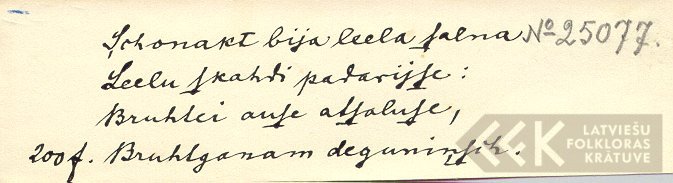 Schonakt bija leela salna № 25077.
Leelu skahdi padarijse:
Bruhtei ause atsaluse,
200f. Bruhtganam deguninsch.
LATVIEŠU
FOLKLORAS
KRĀTUVE